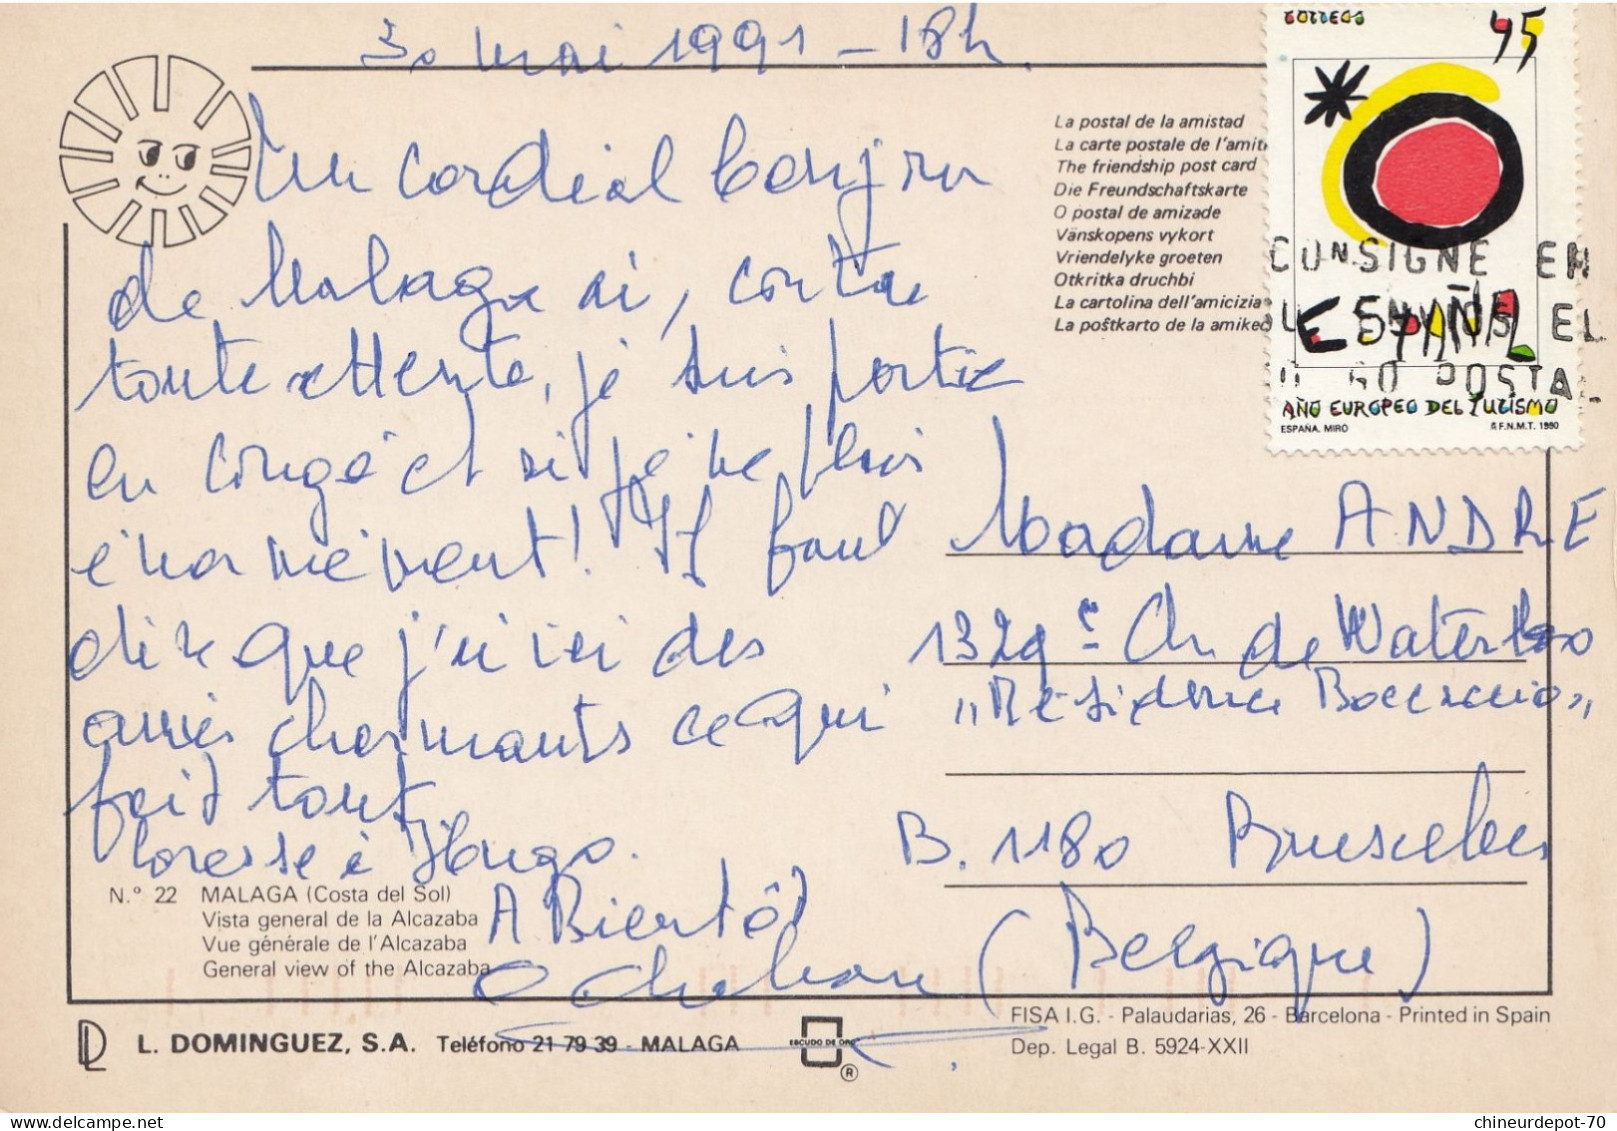 30 mai 1991 - 18h.
Un cordial bonjour
de Malaga où, contre
toute attente, je suis partie
en congé et où je me plais
énormément! Il faut
dire que j'ai ici des
amies charmants ce qui
fait tout.
Caresse à Hugo.
A Bientôt
N.° 22 MALAGA (Costa del Sol)
Vista general de la Alcazaba
Vue générale de l'Alcazaba
General view of the Alcazaba
La postal de la amistad
La carte postale de l'amiti
The friendship post card
Die Freundschaftskarte
O postal de amizade
Vänskopens vykort
Vriendelyke groeten
Otkritka druchbi
La cartolina dell'amicizia
La poŝtkarto de la amikec
CORREOS 45
ESPAÑA
AÑO EUROPEO DEL TURISMO
ESPAÑA. MIRO F.N.M.T. 1990
CONSIGNE EN
ENVIOS EL
GO POSTA
Madame ANDRE
1329 Ch de Waterloo
"Résidence Boccaccio"
B. 1180 Bruxelles
(Belgique)
L. DOMINGUEZ, S.A. Teléfono 21 79 39 - MALAGA
ESCUDO DE ORO
®
FISA I.G. - Palaudarias, 26 - Barcelona - Printed in Spain
Dep. Legal B. 5924-XXII
chineurdepot-70